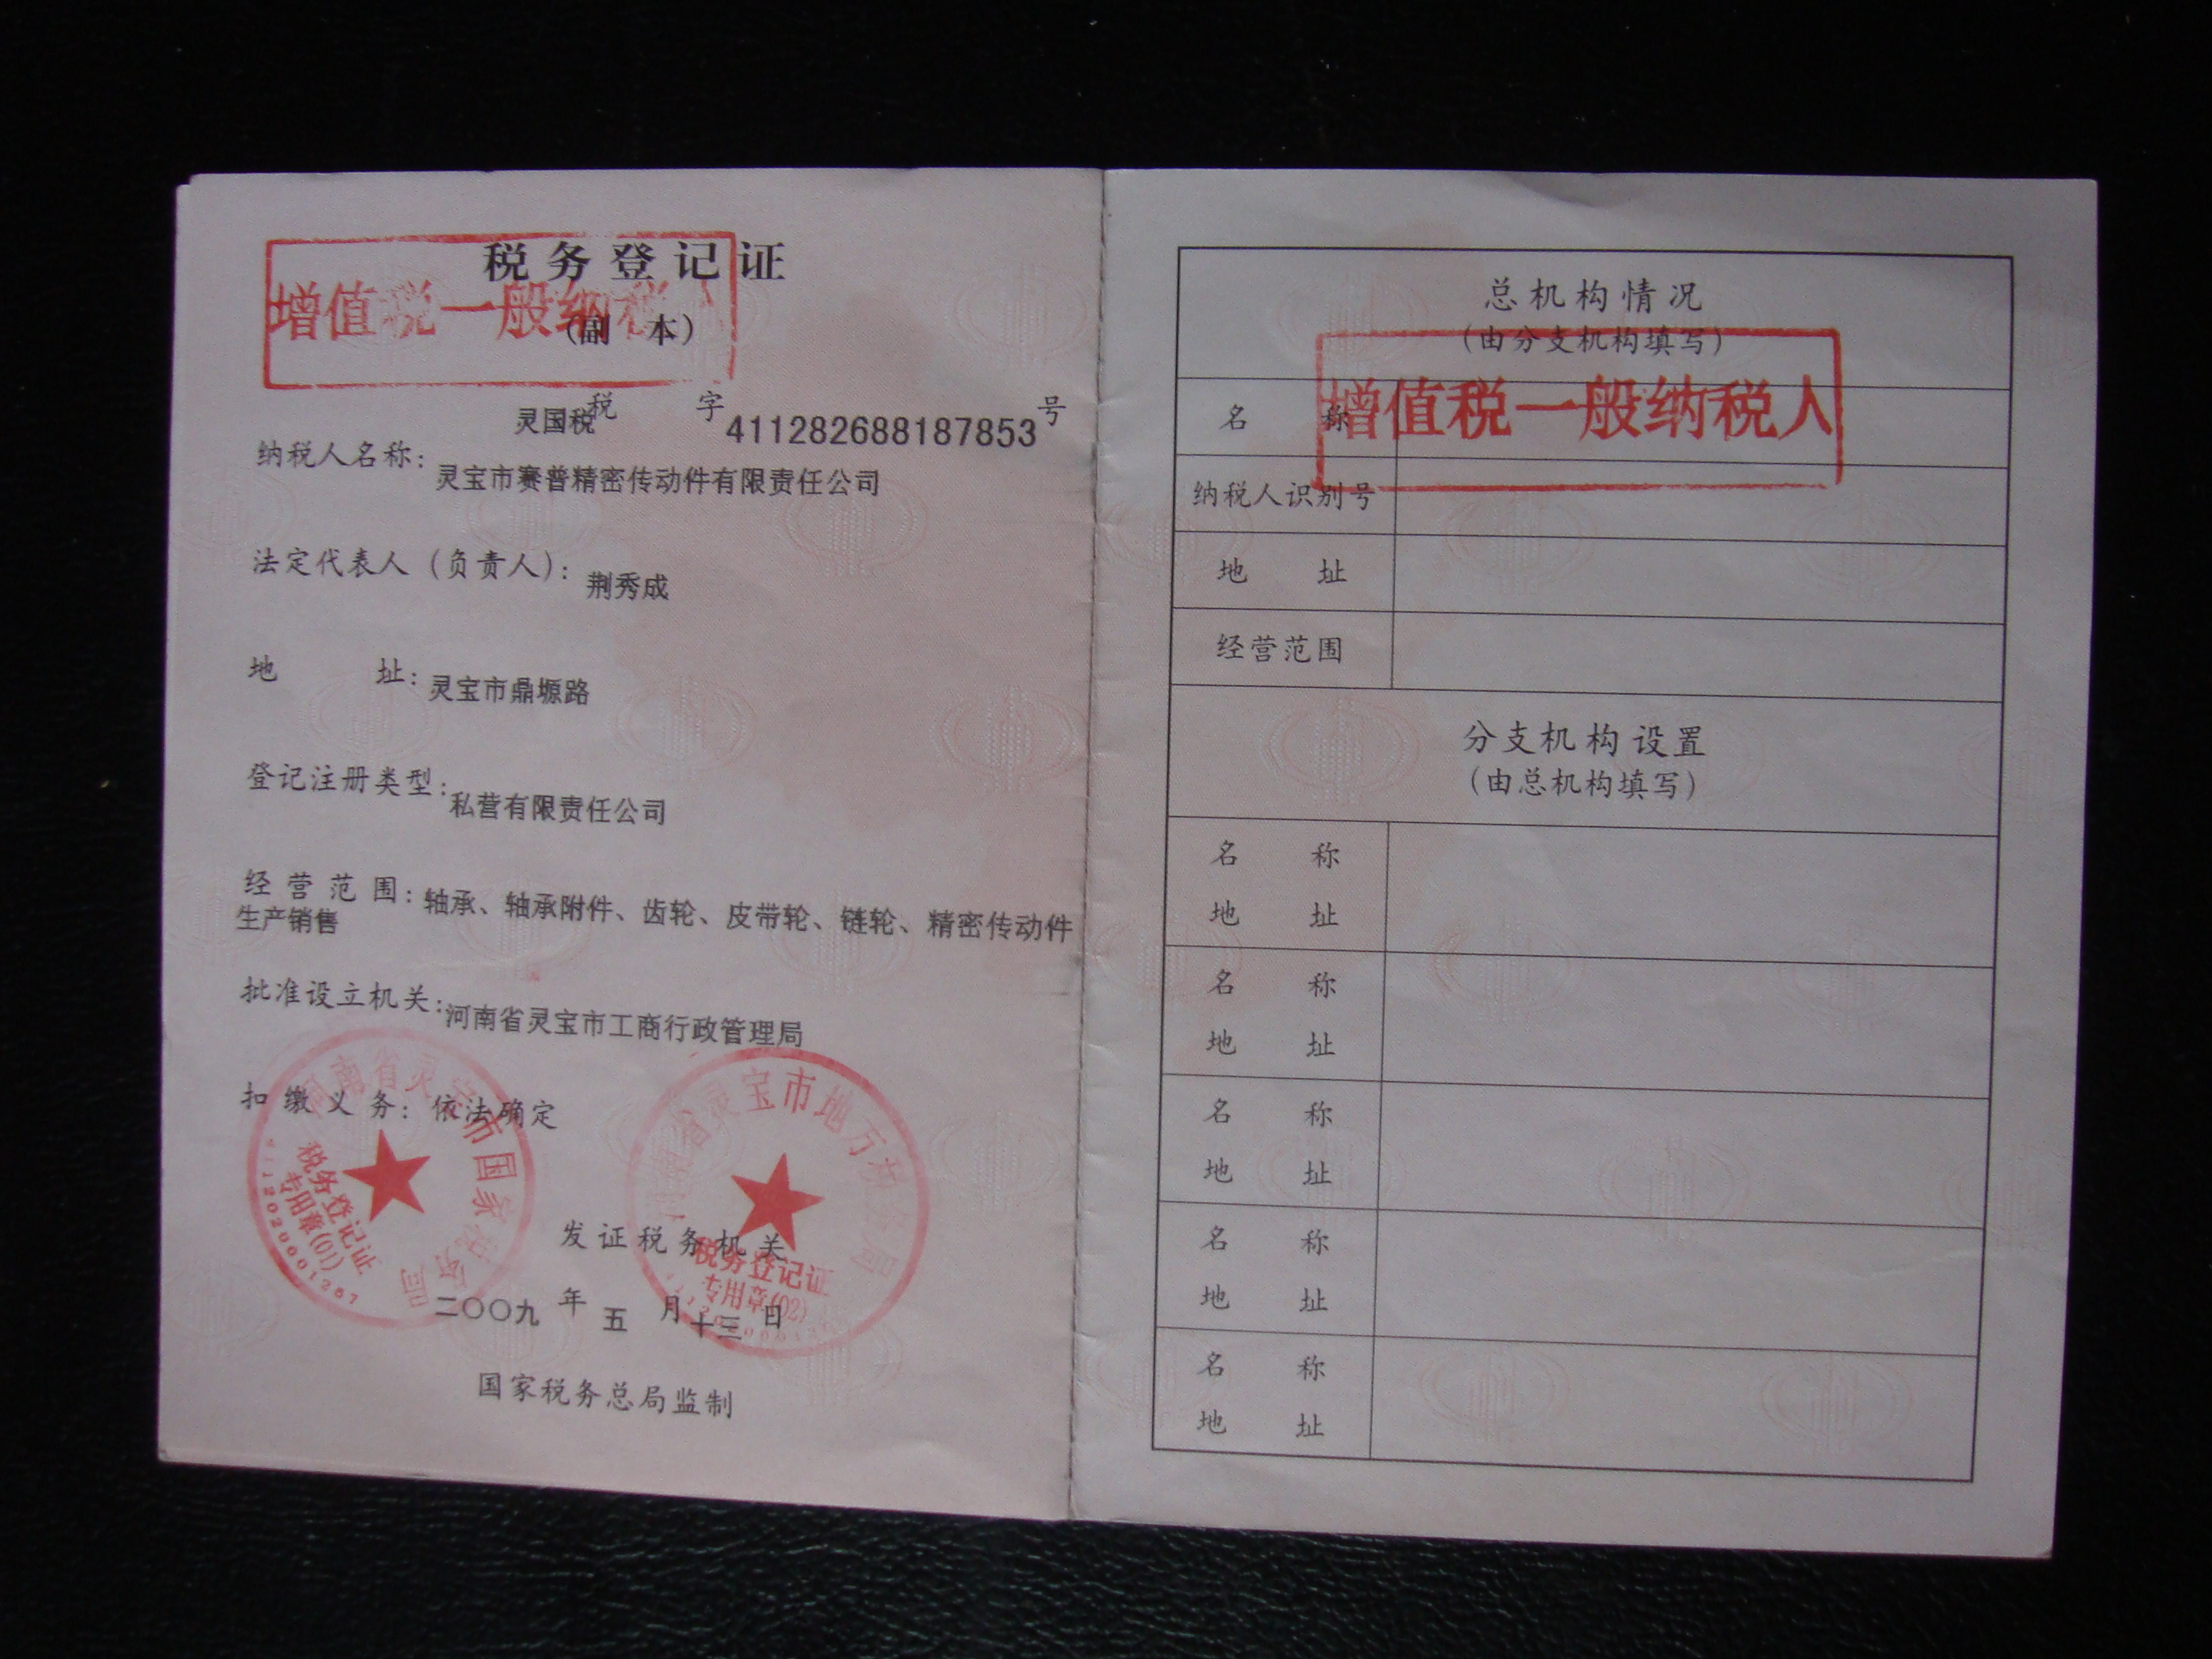 税务登记证
(副 本)
增值税一般纳税人
灵国税 税 字 411282688187853 号
纳税人名称: 灵宝市赛普精密传动件有限责任公司
法定代表人(负责人): 荆秀成
地 址: 灵宝市鼎塬路
登记注册类型: 私营有限责任公司
经营范围: 轴承、轴承附件、齿轮、皮带轮、链轮、精密传动件
生产销售
批准设立机关: 河南省灵宝市工商行政管理局
扣缴义务: 依法确定
河南省灵宝市国家税务局
税务登记证
专用章(01)
河南省灵宝市地方税务局
税务登记证
专用章(02)
发证税务机关
二〇〇九 年 五 月 十三 日
国家税务总局监制
总机构情况
(由分支机构填写)
增值税一般纳税人
名 称
纳税人识别号
地 址
经营范围
分支机构设置
(由总机构填写)
名 称
地 址
名 称
地 址
名 称
地 址
名 称
地 址
名 称
地 址